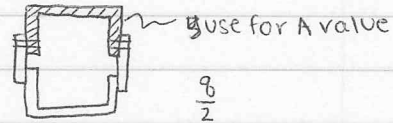 use for A value
8
2